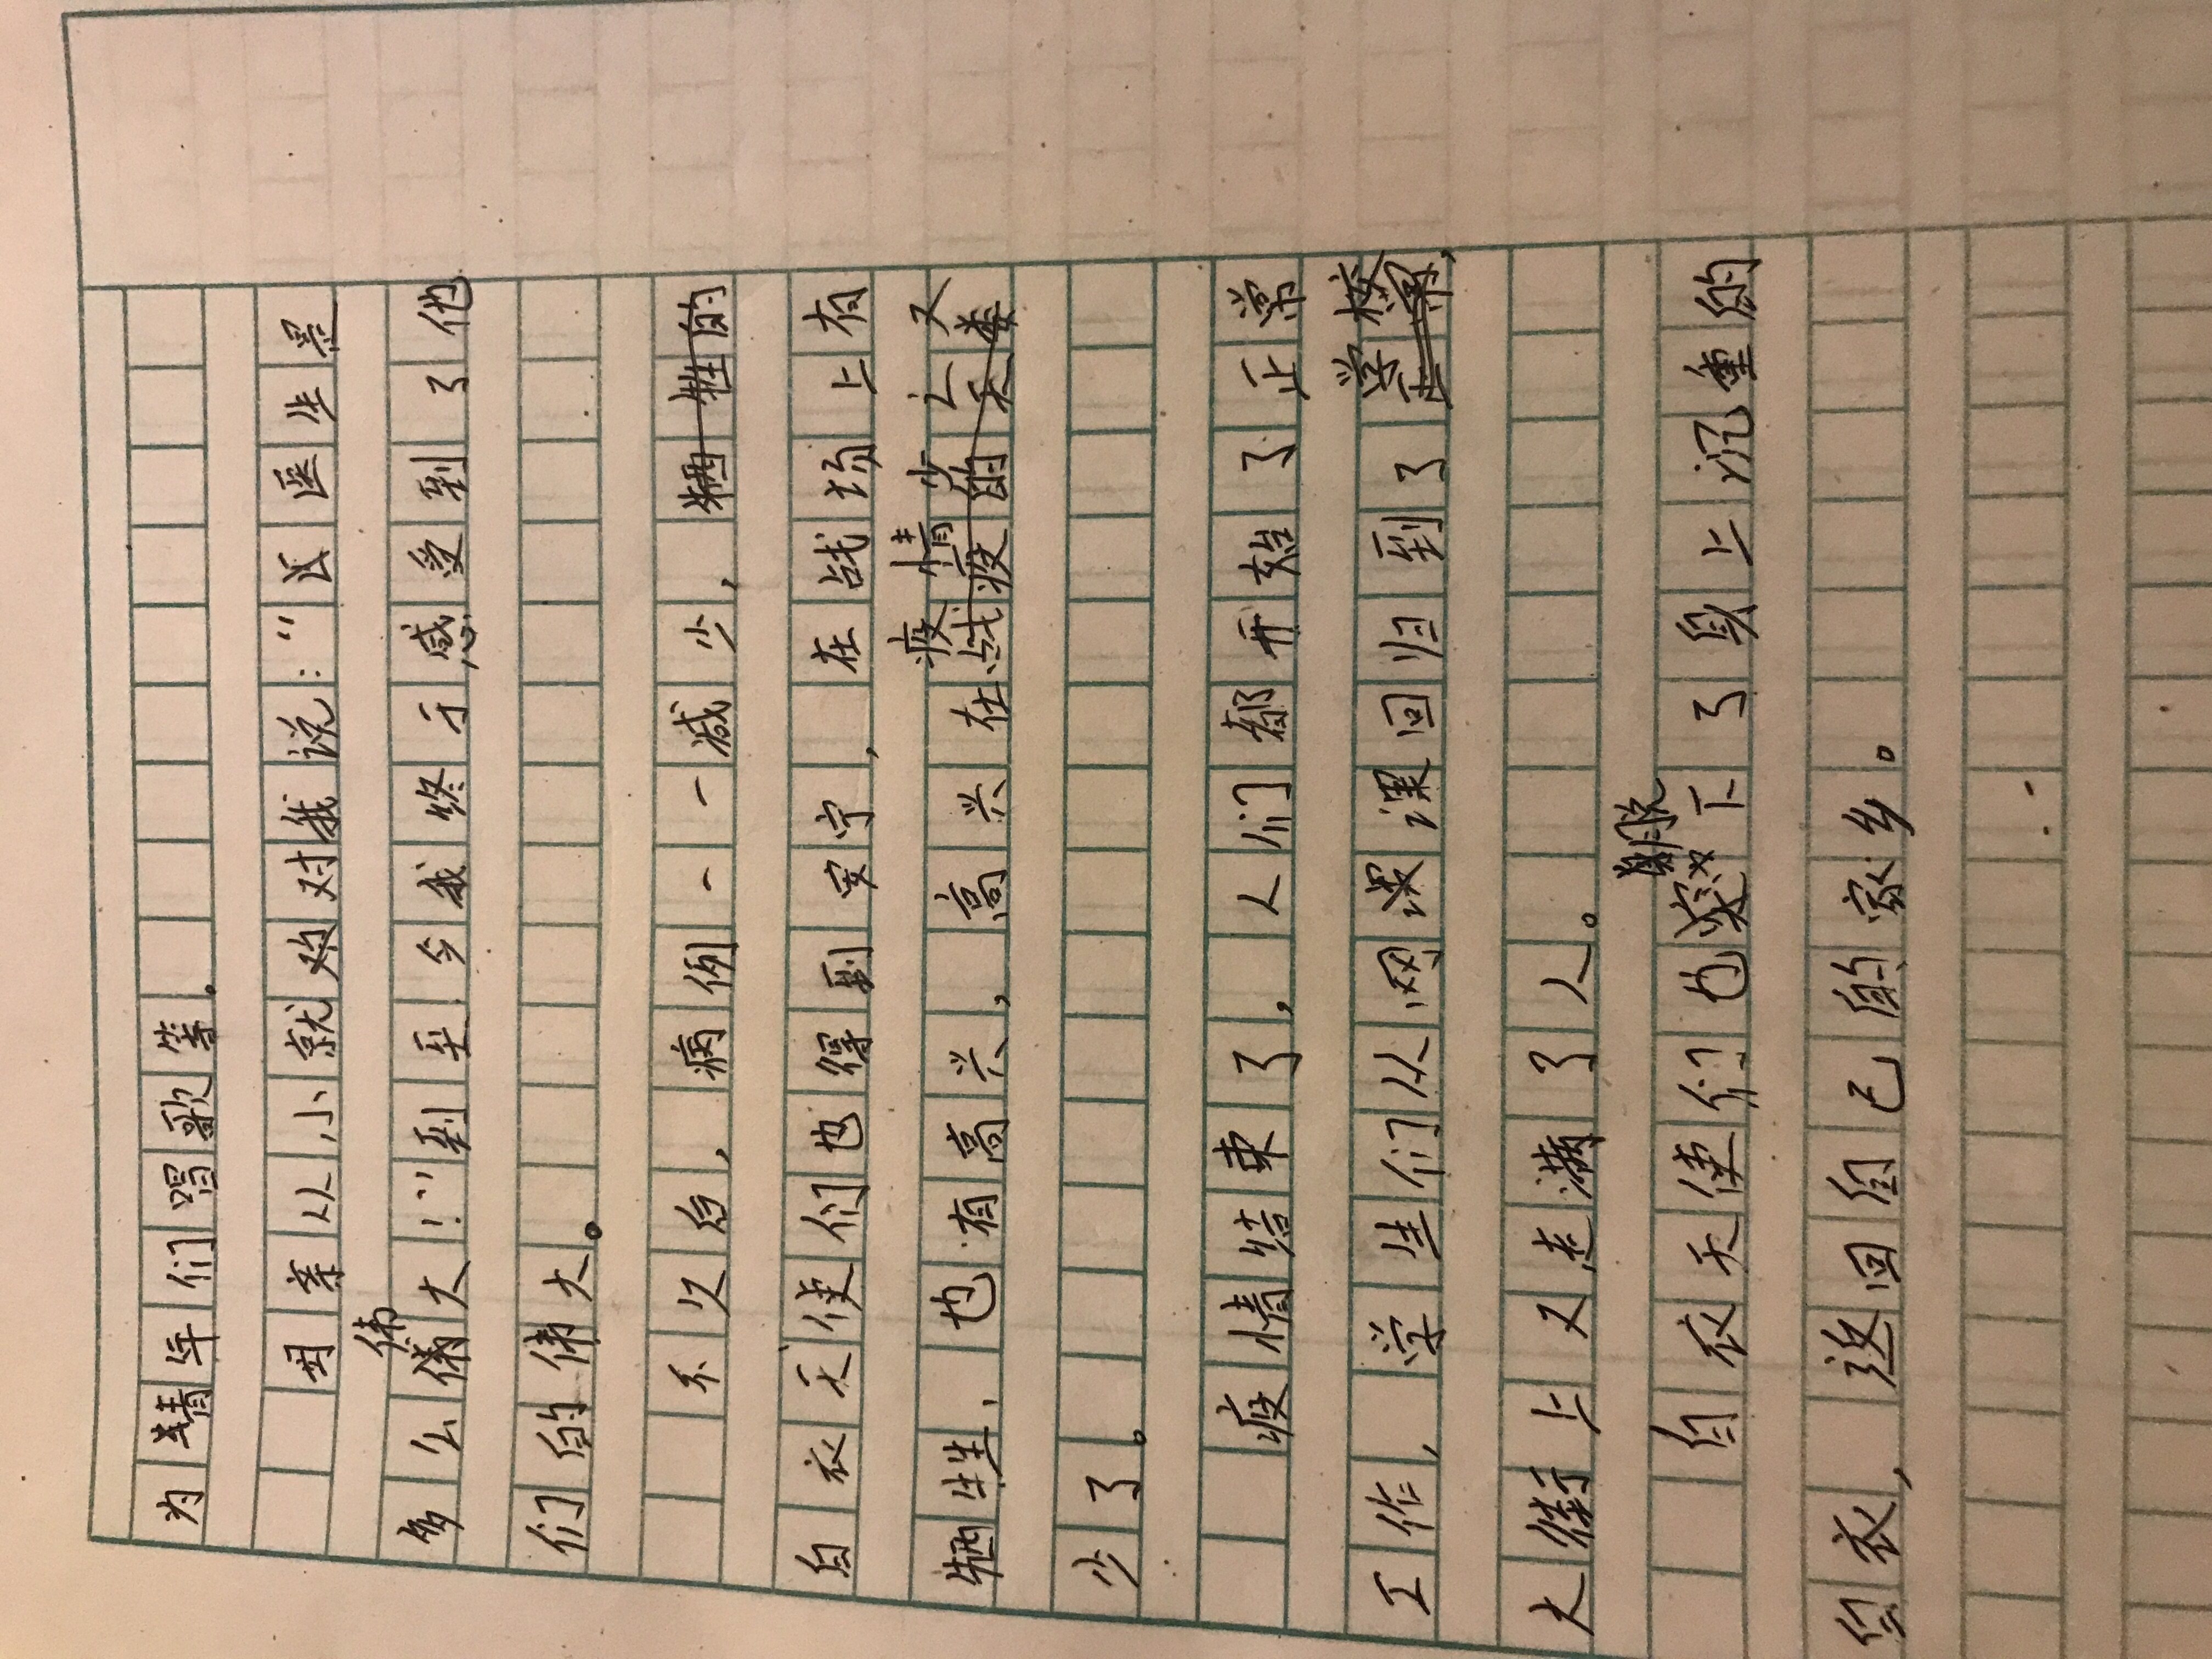 为青年们唱歌等.
母亲从小就对对我说:“医生是
多么伟大!”到至今我终于感受到了他
们的伟大。
不久后,病例一一减少,牺牲的
白衣天使们也得到安宁,在战场上有
牺牲,也有高兴,高兴在疫情少亡又
少了。
疫情结束了,人们都开始了正常
工作,学生们从网课课回归到了学校,
大街上又走满了人。
白衣天使们也脱下了身上沉重的
白衣,返回自己的家乡。